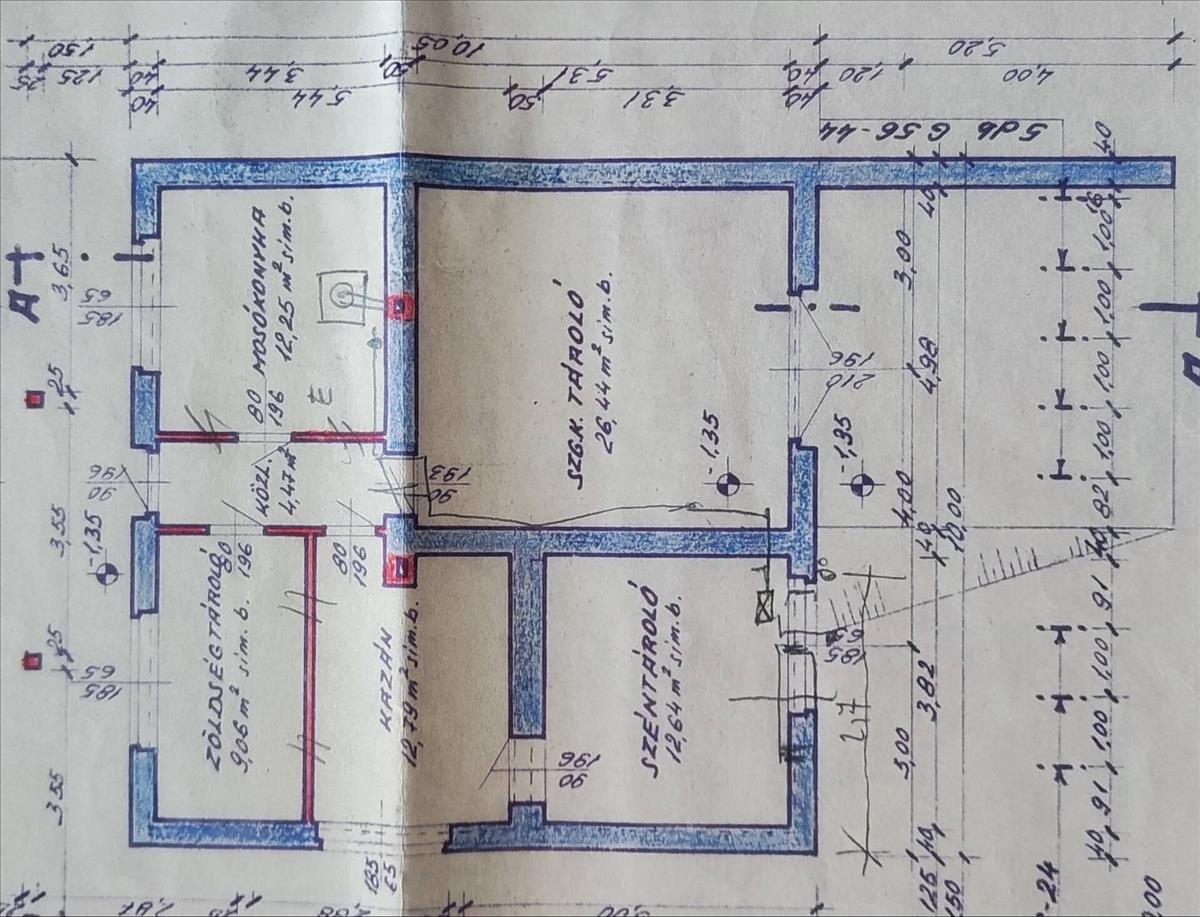 1,50
10,05
5,20
25
125
40
3,44
50
5,31
40
1,20
4,00
40
5,44
50
3,31
40
5 db G 56-44
A
3,65
65
185
25
3,55
-1,35
25
65
185
355
90
196
MOSÓKONYHA
12,25 m² sim.b.
80
196
KÖZL.
4,47 m²
ZÖLDSÉGTÁROLÓ
9,06 m² sim.b.
80
196
80
196
KAZÁN
12,79 m² sim.b.
90
193
SZGK TÁROLÓ
26,44 m² sim.b.
-1,35
196
210
-1,35
SZÉNTÁROLÓ
12,64 m² sim.b.
90
196
65
185
217
40
3,00
4,98
4,00
40
10,00
3,82
3,00
40
125
150
40
16
1,00
1,00
1,00
1,00
82
40
91
1,00
1,00
91
40
-24
00